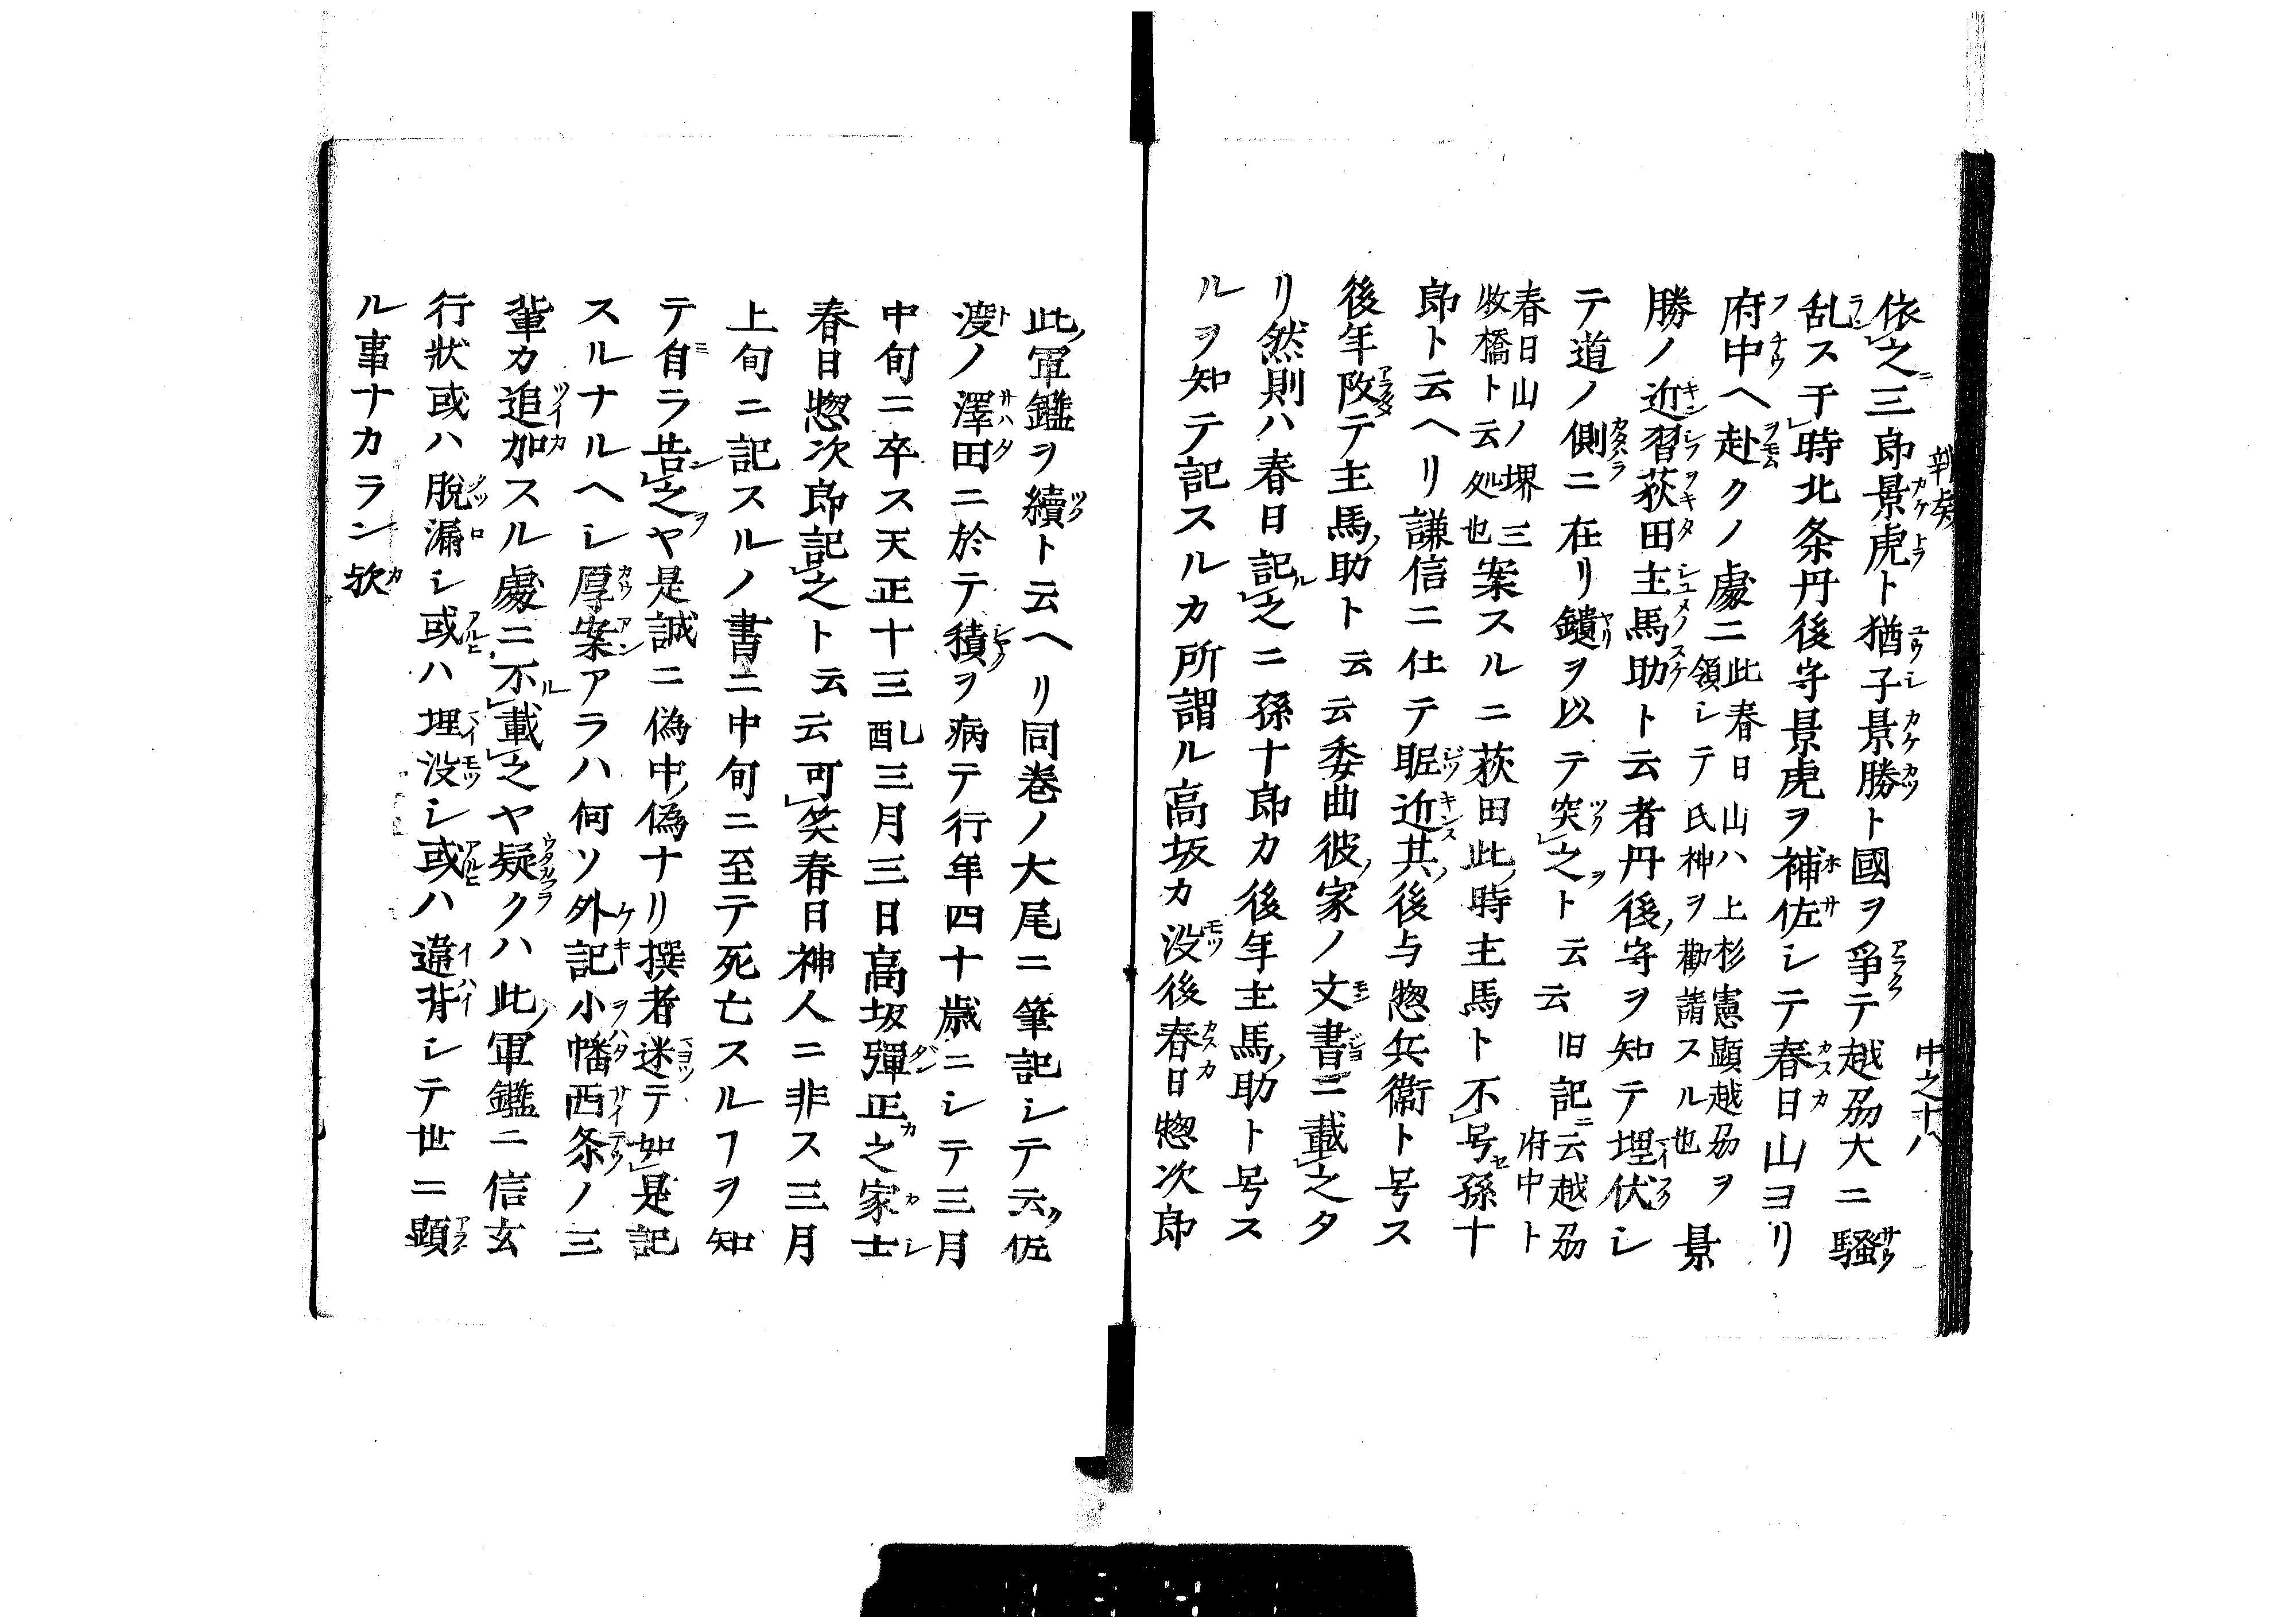 中之十八
依之三郎景虎ト猶子景勝ト國ヲ爭テ越刕大ニ騷
乱ス于時北条丹後守景虎ヲ補佐シテ春日山ヨリ
府中ヘ赴クノ處ニ此春日山ハ上杉憲顕越刕ヲ
領シテ氏神ヲ勸請スル也景
勝ノ近習荻田主馬助ト云者丹後守ヲ知テ埋伏シ
テ道ノ側ニ在リ鑓ヲ以テ突之ト云云旧記ニ云越刕
府中ト
春日山ノ堺三
放橋ト云処也案スルニ荻田此時主馬ト不号孫十
郎ト云ヘリ謙信ニ仕テ昵近其後与惣兵衞ト号ス
後年改テ主馬助ト云云委曲彼家ノ文書ニ載之タ
リ然則ハ春日記之ニ孫十郎カ後年主馬助ト号ス
ルヲ知テ記スルカ所謂ル高坂カ没後春日惣次郎
此軍鑑ヲ續ト云ヘリ同巻ノ大尾ニ筆記シテ云佐
渡ノ澤田ニ於テ積ヲ病テ行年四十歳ニシテ三月
中旬ニ卒ス天正十三乙酉三月三日高坂彈正之家士
春日惣次郎記之ト云云可笑春日神人ニ非ス三月
上旬ニ記スルノ書ニ中旬ニ至テ死亡スルヿヲ知
テ自ラ告之ヤ是誠ニ偽中偽ナリ撰者迷テ如是記
スルナルヘシ厚案アラハ何ソ外記小幡西条ノ三
輩カ追加スル處ニ不載之ヤ疑クハ此軍鑑ニ信玄
行狀或ハ脫漏シ或ハ埋没シ或ハ違背シテ世ニ顕
ル事ナカラン欤